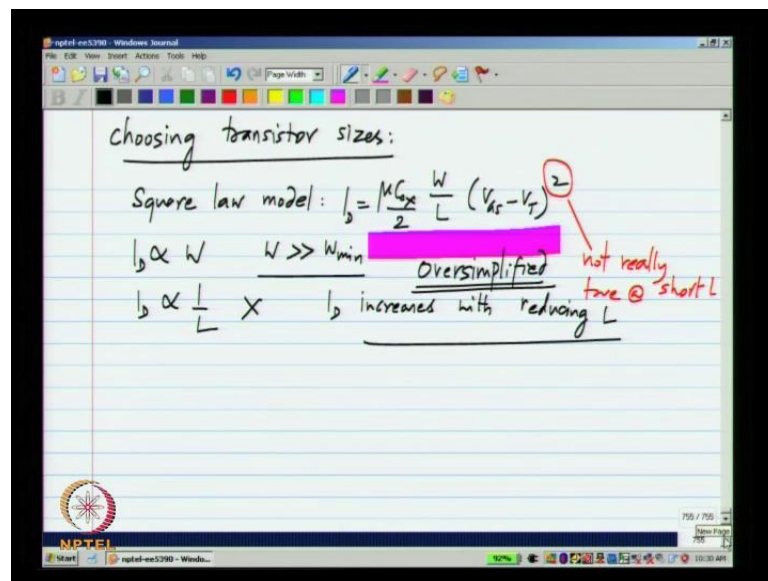 nptel-ee5390 - Windows Journal
File Edit View Insert Actions Tools Help
Page Width
B I
Choosing transistor sizes:
Square law model: I_D = μC_ox/2 W/L (V_GS - V_T)^2
I_D ∝ W W >> W_min Oversimplified
not really true @ short L
I_D ∝ 1/L X I_D increases with reducing L
NPTEL
755 / 755
New Page
755
Start nptel-ee5390 - Windo... 92% 10:30 AM